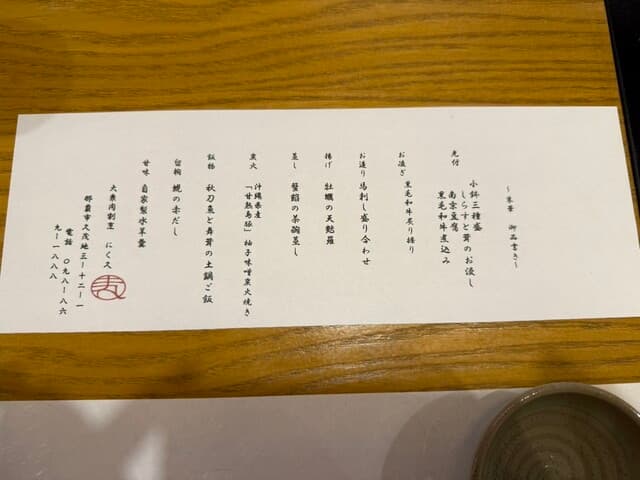 御品書き〜
先付
小鉢三種盛
しらすと茸のお浸し
南京豆腐
黒毛和牛煮込み
お凌ぎ 黒毛和牛炙り握り
お造り 馬刺し盛り合わせ
揚げ 牡蠣の天麩羅
蒸し 蟹餡の茶碗蒸し
炭火 沖縄県産
「甘熟島豚」 柚子味噌炭火焼き
飯物 秋刀魚と舞茸の土鍋ご飯
留椀 鯱の赤だし
甘味 自家製水羊羹
大衆肉割烹 にく久
那覇市久茂地三ー十二ー一
電話 〇九八ー八六
九ー一八八八